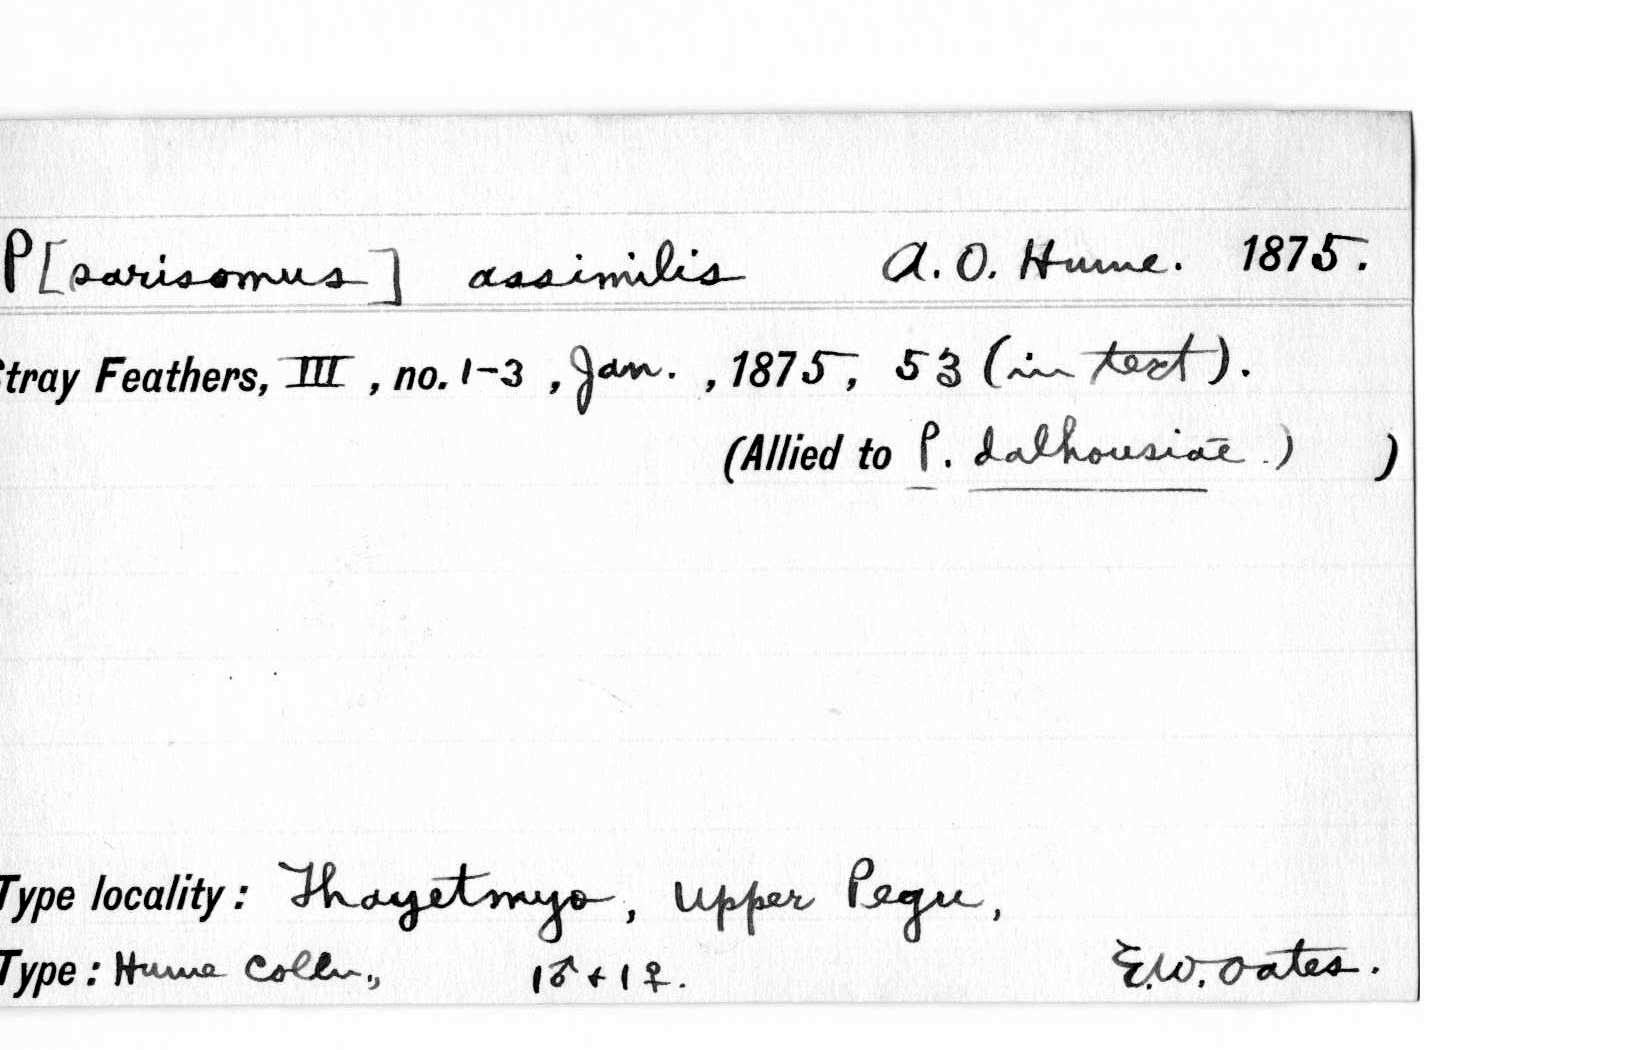 P[sarisomus] assimilis A. O. Hume. 1875.
Stray Feathers, III, no. 1-3, Jan., 1875, 53 (in text).
(Allied to P. dalhousiae.) )
Type locality: Thayetmyo, Upper Pegu,
Type: Hume Colln., 1♂ + 1♀. E.W. Oates.